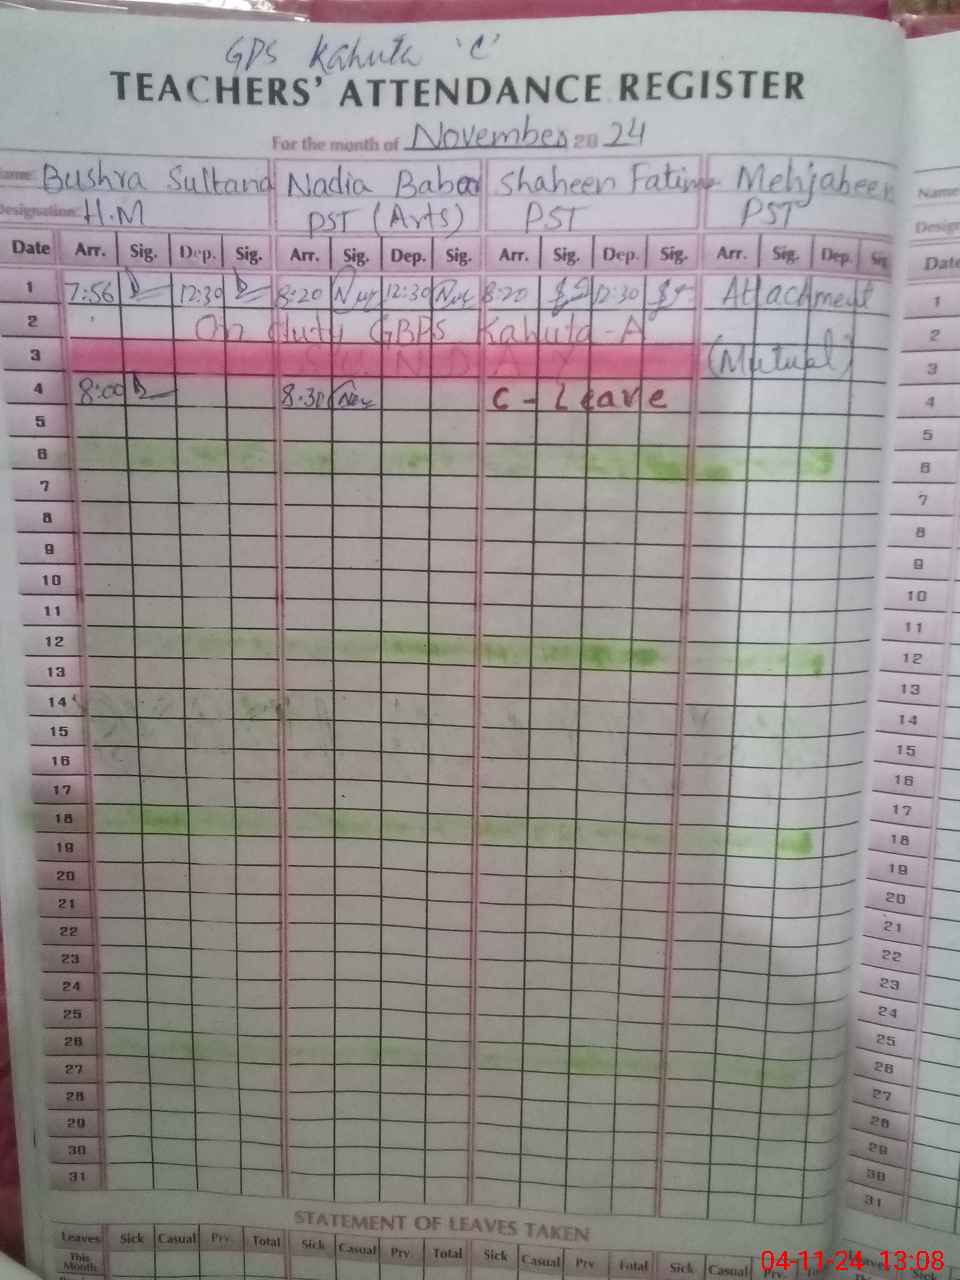 GPS Kahuta 'C'
TEACHERS' ATTENDANCE REGISTER
For the month of November 2024
Name: Bushra Sultana Nadia Babar Shaheen Fatima Mehjabeen Name
Designation: H.M PST (Arts) PST PST Design
Date Arr. Sig. Dep. Sig. Arr. Sig. Dep. Sig. Arr. Sig. Dep. Sig. Arr. Sig. Dep. Sig. Date
1 7:56 12:30 8:20 12:30 8:20 12:30 Attachment 1
2 On duty GBPS Kahuta-A 2
3 SUNDAY (Mutual) 3
4 8:00 8:30 C-Leave 4
5 5
6 6
7 7
8 8
9 9
10 10
11 11
12 12
13 13
14 14
15 15
16 16
17 17
18 18
19 19
20 20
21 21
22 22
23 23
24 24
25 25
26 26
27 27
28 28
29 29
30 30
31 31
STATEMENT OF LEAVES TAKEN
Leaves Sick Casual Prv. Total Sick Casual Prv. Total Sick Casual Prv Total Sick Casual Prv.
This Month
04-11-24 13:08